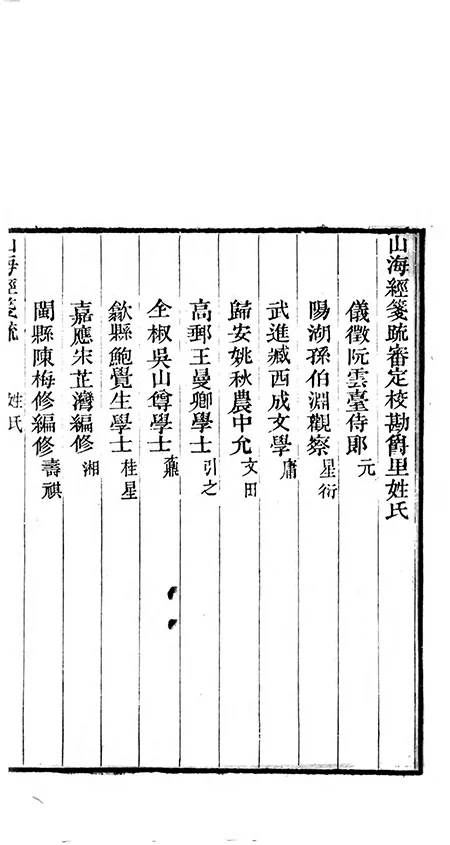 山海經箋疏審定校勘爵里姓氏
儀徵阮雲臺侍郎元
陽湖孫伯淵觀察星衍
武進臧西成文學庸
歸安姚秋農中允文田
高郵王曼卿學士引之
全椒吳山尊學士鼒
歙縣鮑覺生學士桂星
嘉應宋芷灣編修湘
閩縣陳梅修編修壽祺
山海經箋疏 姓氏